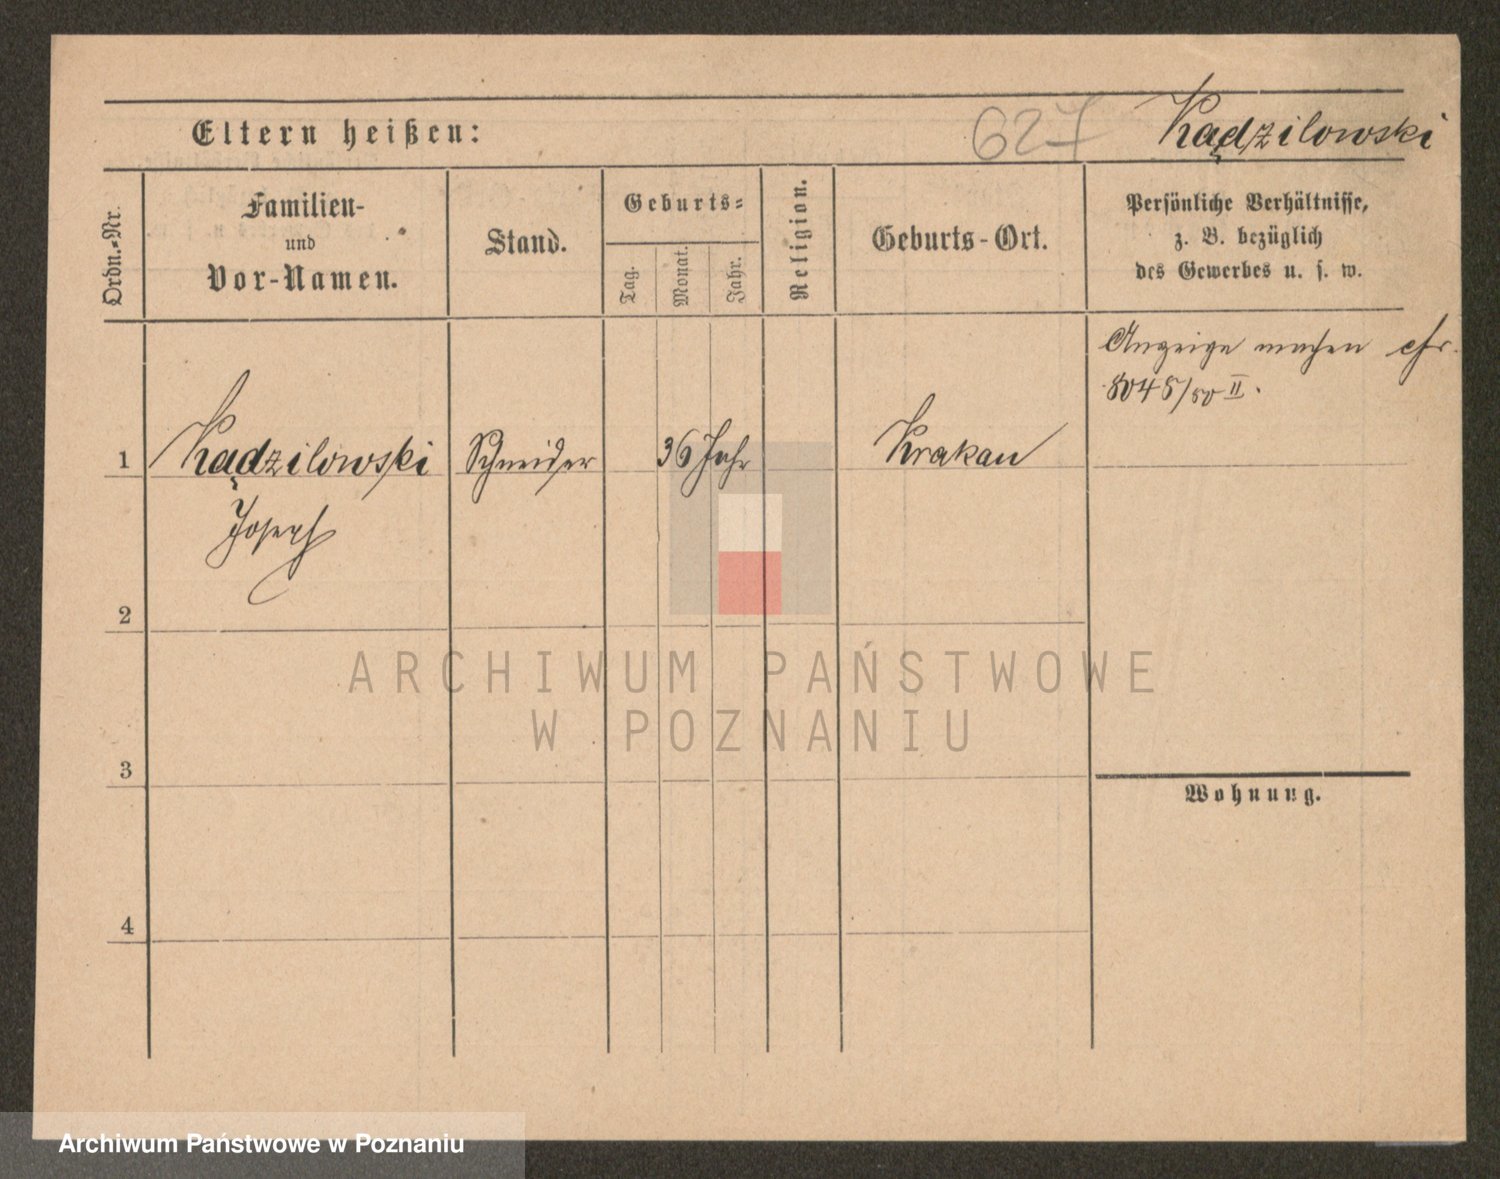 Eltern heißen:
627
Kądzilowski
Ordn.-Nr.
Familien-
und
Vor-Namen.
Stand.
Geburts-
Tag.
Monat.
Jahr.
Religion.
Geburts-Ort.
Persönliche Verhältnisse,
z. B. bezüglich
des Gewerbes u. s. w.
Anzeige machen cfr.
8045/80 II.
1 Kądzilowski Schneider 36 Jahr Krakau
Joseph
2
ARCHIWUM PAŃSTWOWE
W POZNANIU
3
Wohnung.
4
Archiwum Państwowe w Poznaniu